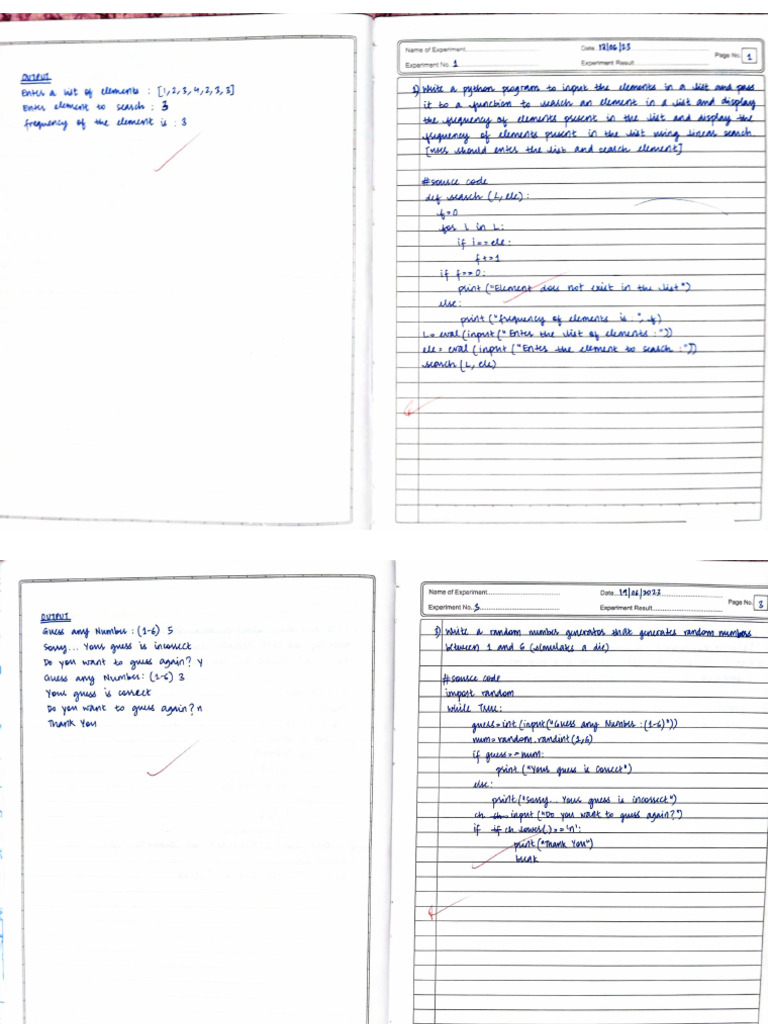 OUTPUT
Enter a list of elements : [1,2,3,4,2,3,3]
Enter element to search : 3
frequency of the element is : 3
Name of Experiment
Date 12/06/23
Experiment No. 1
Experiment Result
Page No. 1
1) Write a python program to input the elements in a list and pass
it to a function to search an element in a list and display
the frequency of elements present in the list and display the
frequency of elements present in the list using linear search
[user should enter the list and search element]
#source code
def search (L, ele):
f=0
for i in L:
if i==ele:
f+=1
if f==0:
print ("Element does not exist in the list")
else:
print ("frequency of elements is : ", f)
L= eval(input("Enter the list of elements : "))
ele= eval (input ("Enter the element to search : "))
search (L, ele)
OUTPUT
Guess any Number : (1-6) 5
Sorry... Your guess is incorrect
Do you want to guess again? y
Guess any Number: (1-6) 3
Your guess is correct
Do you want to guess again? n
Thank You
Name of Experiment
Date 19/06/2023
Experiment No. 3
Experiment Result
Page No. 3
3) Write a random number generator that generates random numbers
between 1 and 6 (simulates a die)
#source code
import random
while True:
guess=int(input("Guess any Number : (1-6)"))
num=random.randint(1,6)
if guess==num:
print ("Your guess is correct")
else:
print("Sorry... Your guess is incorrect")
ch = input ("Do you want to guess again?")
if ch.lower()=='n':
print("Thank You")
break